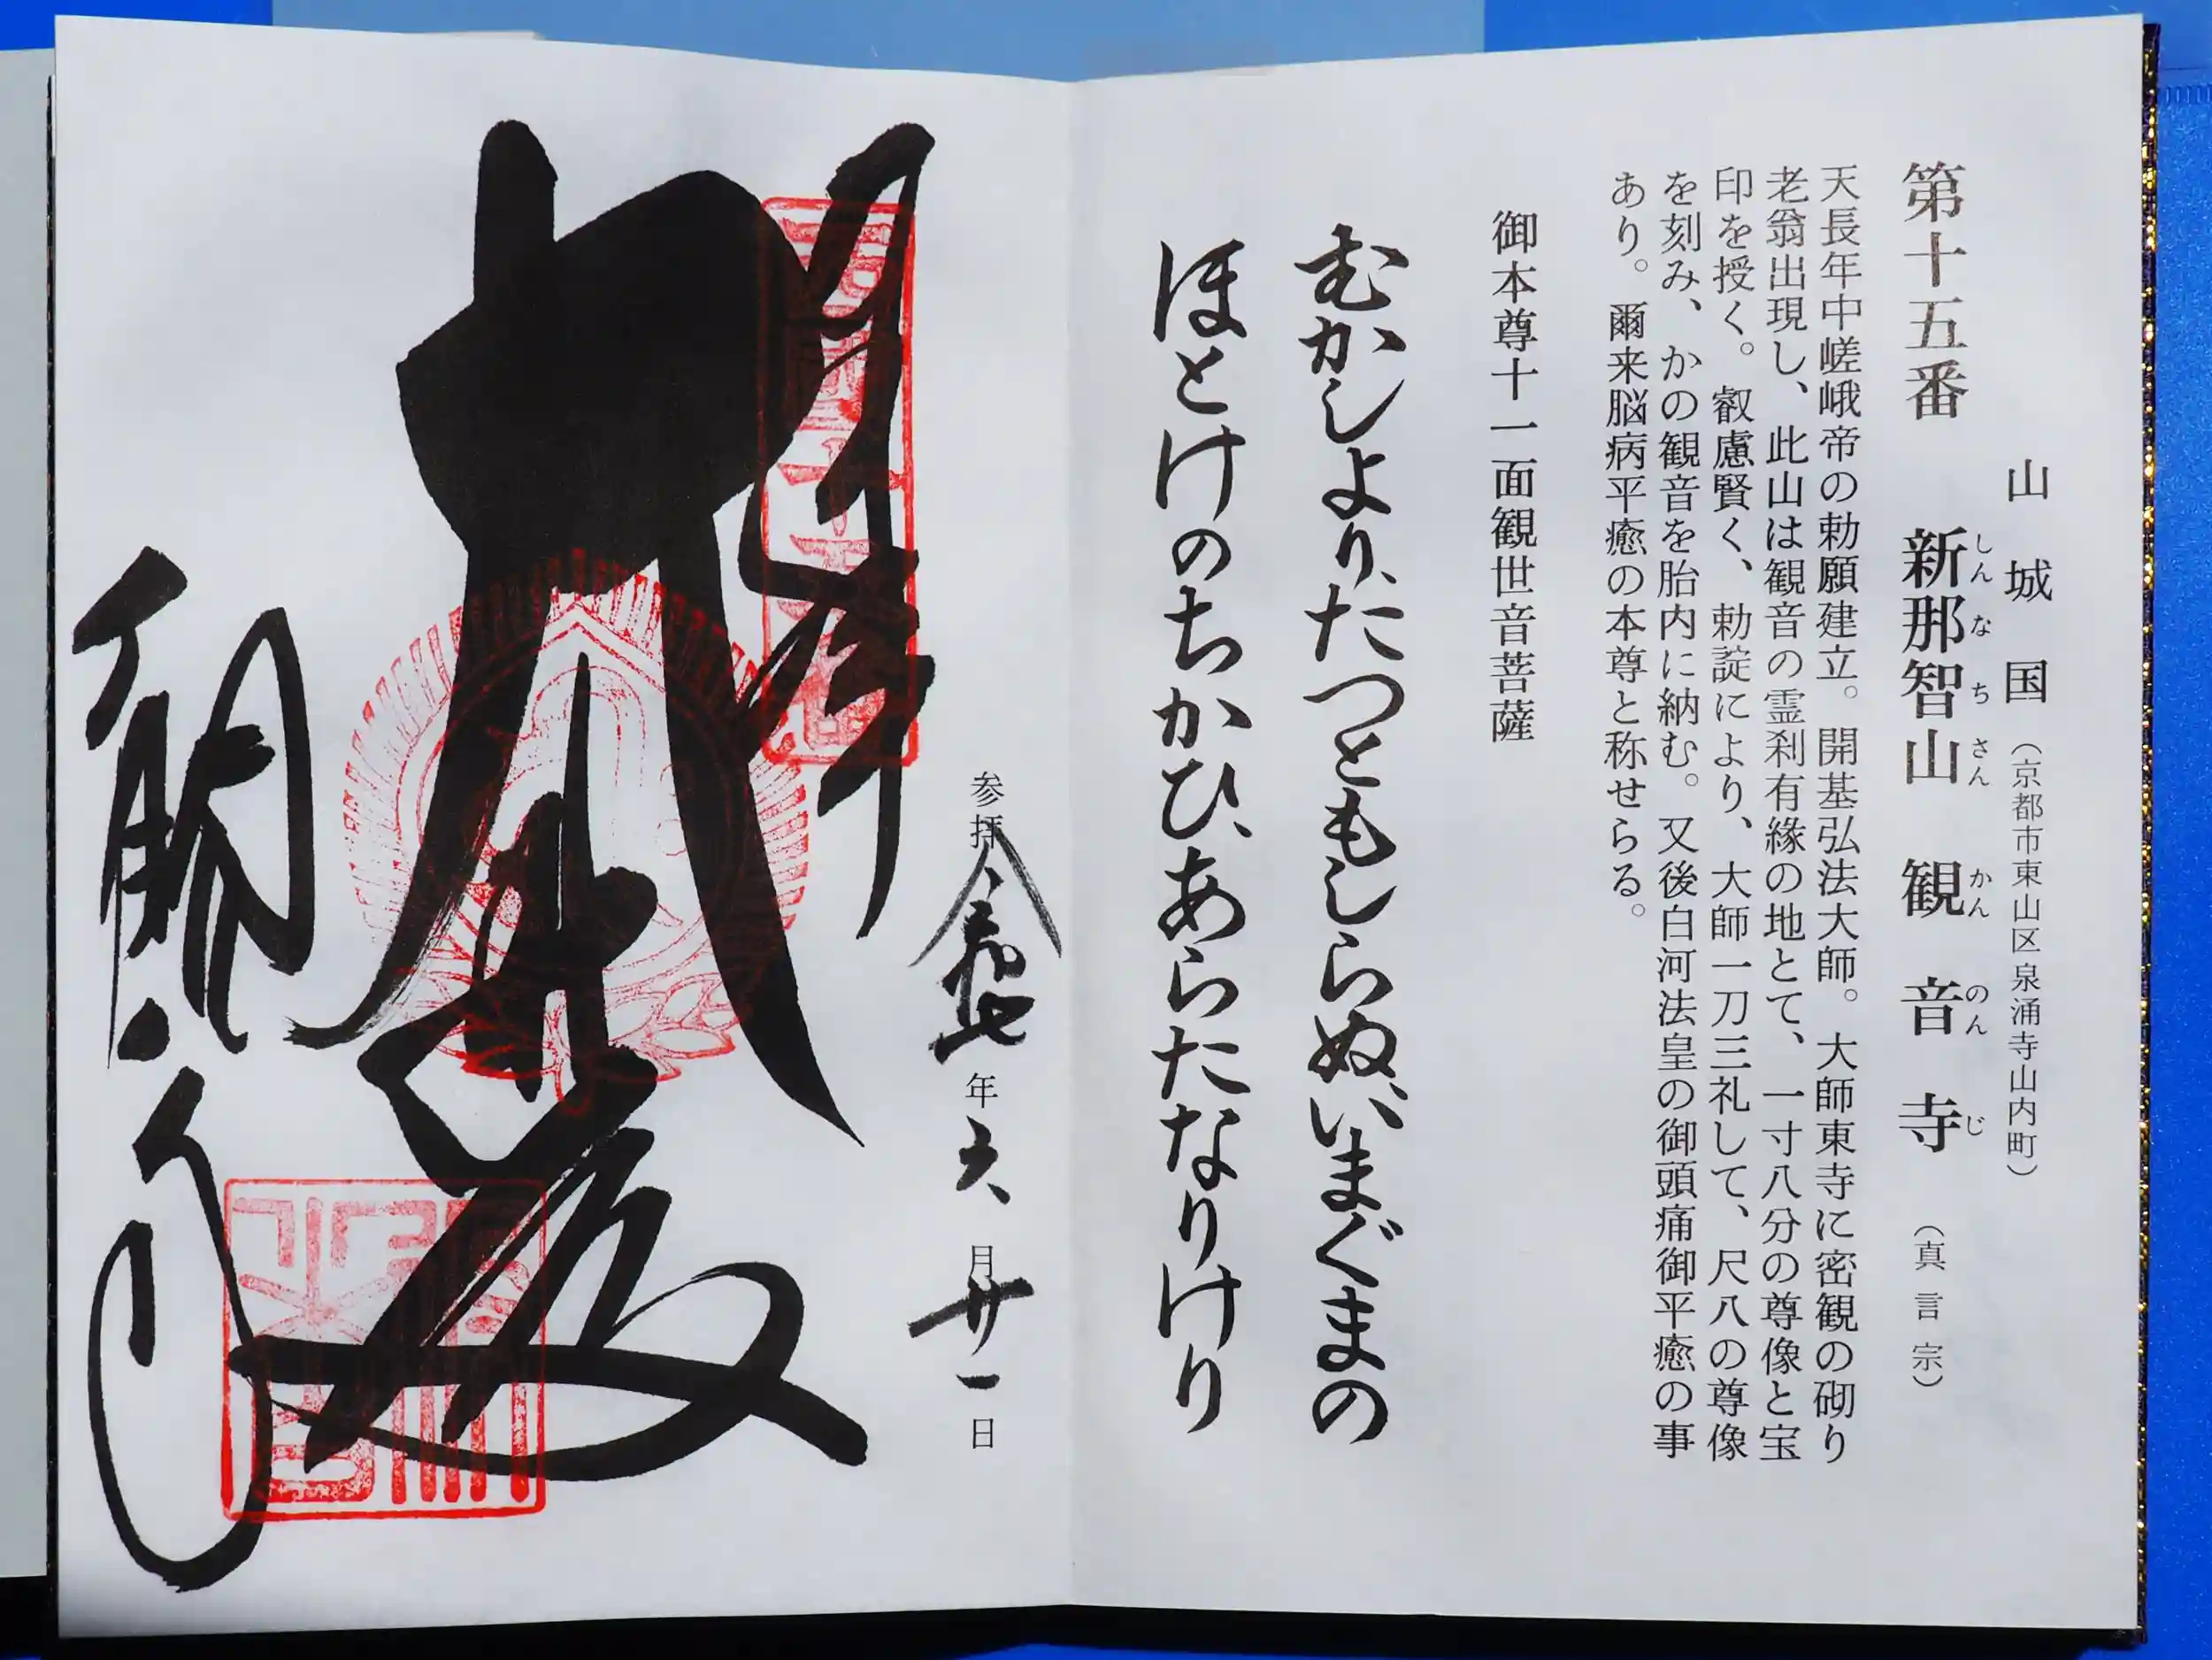 山城国（京都市東山区泉涌寺山内町）
第十五番 新那智山 観音寺（真言宗）
しんなちさん かんのんじ
天長年中嵯峨帝の勅願建立。開基弘法大師。大師東寺に密観の砌り
老翁出現し、此山は観音の霊刹有縁の地とて、一寸八分の尊像と宝
印を授く。叡慮賢く、勅諚により、大師一刀三礼して、尺八の尊像
を刻み、かの観音を胎内に納む。又後白河法皇の御頭痛御平癒の事
あり。爾来脳病平癒の本尊と称せらる。
御本尊十一面観世音菩薩
むかしより、たつともしらぬ、いまぐまの
ほとけのちかひ、あらたなりけり
参拝 令和七年六月廿一日